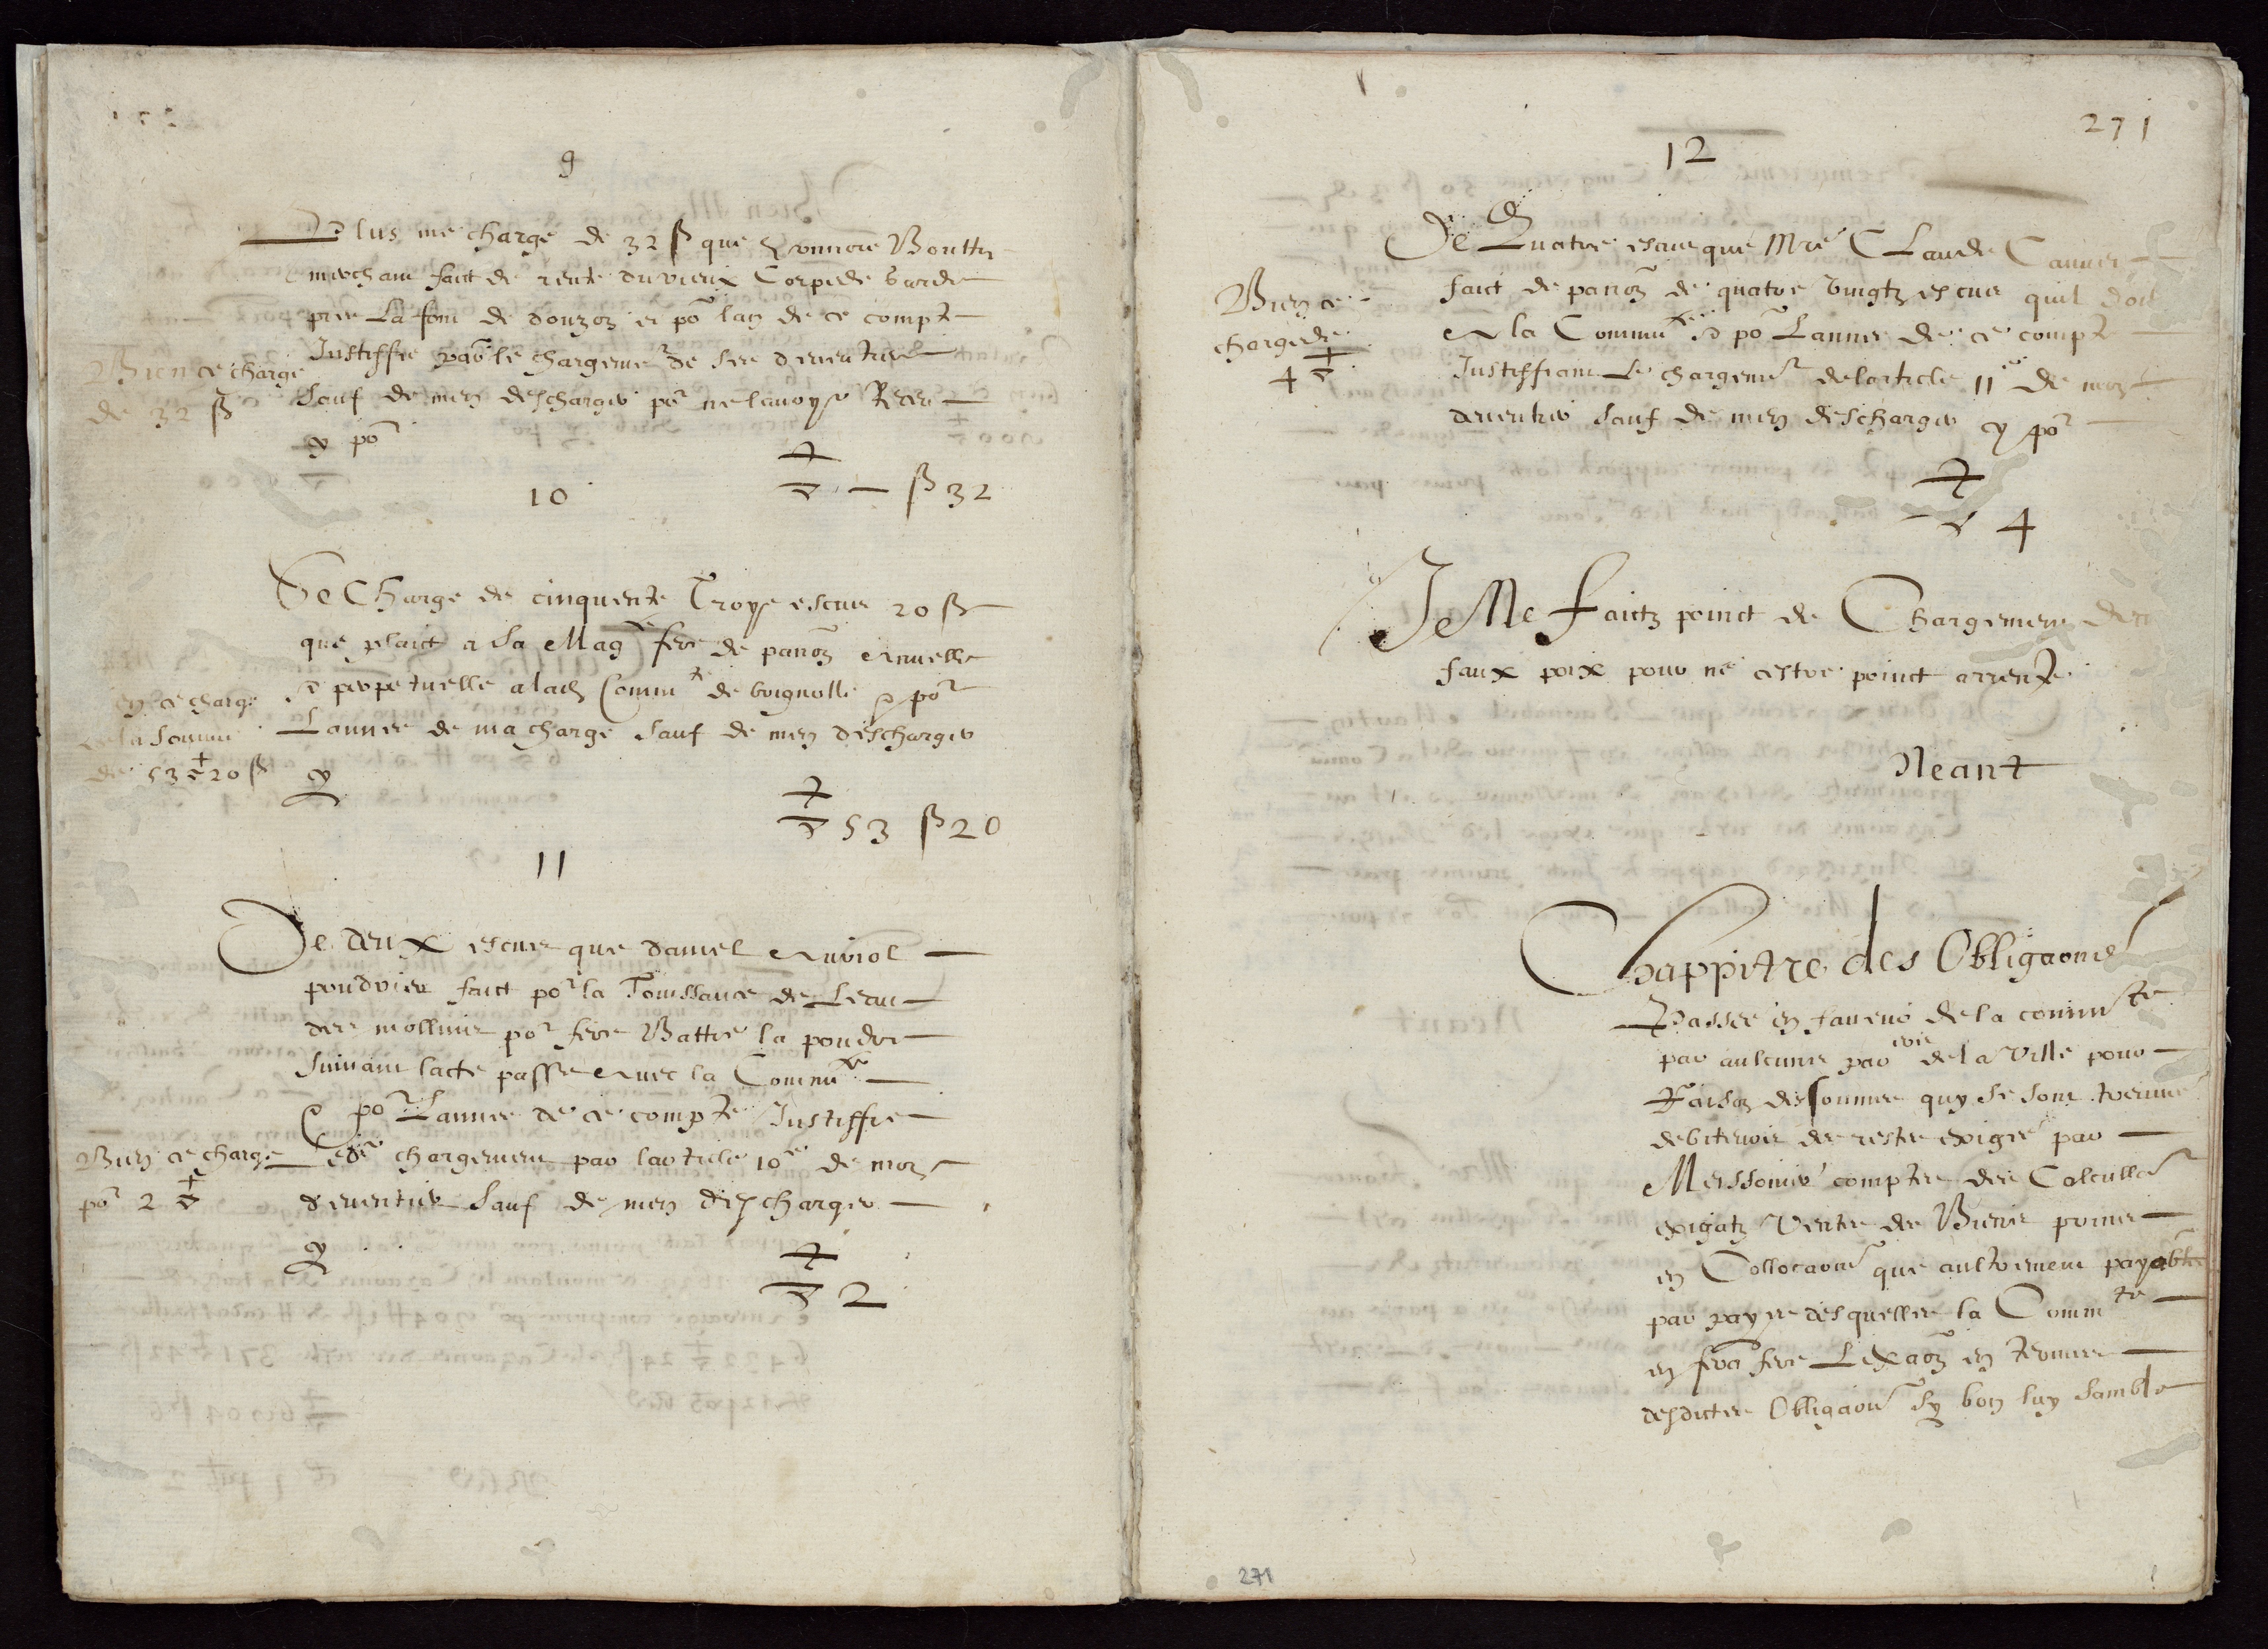 9
Plus me charge de 32 ß que Boutty
marchant faict de rente du vieux Corps de garde
pres la font de douzon et po.r lan de ce compte
Justiffie par le chargement de
Sauf de men descharger po.r ne lavoyr Receu
cy po.r
Bien ce charge
de 32 ß
▽ — ß 32
10
Se Charge de cinquente Troys escus 20 ß
que plaict a Sa Mag.té fere de panon Annuelle
et perpetuelle a lad. Comm.te de brignolle et po.r
Lannee de ma charge sauf de men descharger
cy
en ce charge
de la Somme
de 53 ▽ 20 ß
▽ 53 ß 20
11
De deux escus que daniel Auriol
poudrier faict po.r la Jouissance de Leau
des mollins po.r fere Battre la poudre
Suivant lacte passe Avec la Commu.te
et po.r Lannee de ce compte Justiffie
led. chargement par larticle 10e de mon
deventier sauf de men descharger
cy
Bien ce charge
po.r 2 ▽
▽ 2
271
12
De Quatre escus que Mre CLaude Cauvet
faict de panon de quatre vingtz escus quil doit
A la Commu.te et po.r Lannee de ce compte
Justiffiant Le chargement de larticle 11e de mon
deventier sauf de men descharger cy po.r
Bien ce
charge de
4 ▽
▽ 4
Je Ne faictz poinct de Chargement des
faux poix pour ne estre poinct arrente
Neant
Chappitre des Obligaons
Passes en faveur de la commu.te
par aulcuns par.ers de la Ville pour
Raison des sommes quy se sont treuves
debiteurs des restes exiges par
Meissonier comptes des Calculles
exigatz Ventes de Biens prinses
en Collocaons que aultrement payables
par payes desquelles la Comm.te
en fera fere Lexaon en termes
desdictes Obligaons sy bon luy samble
271